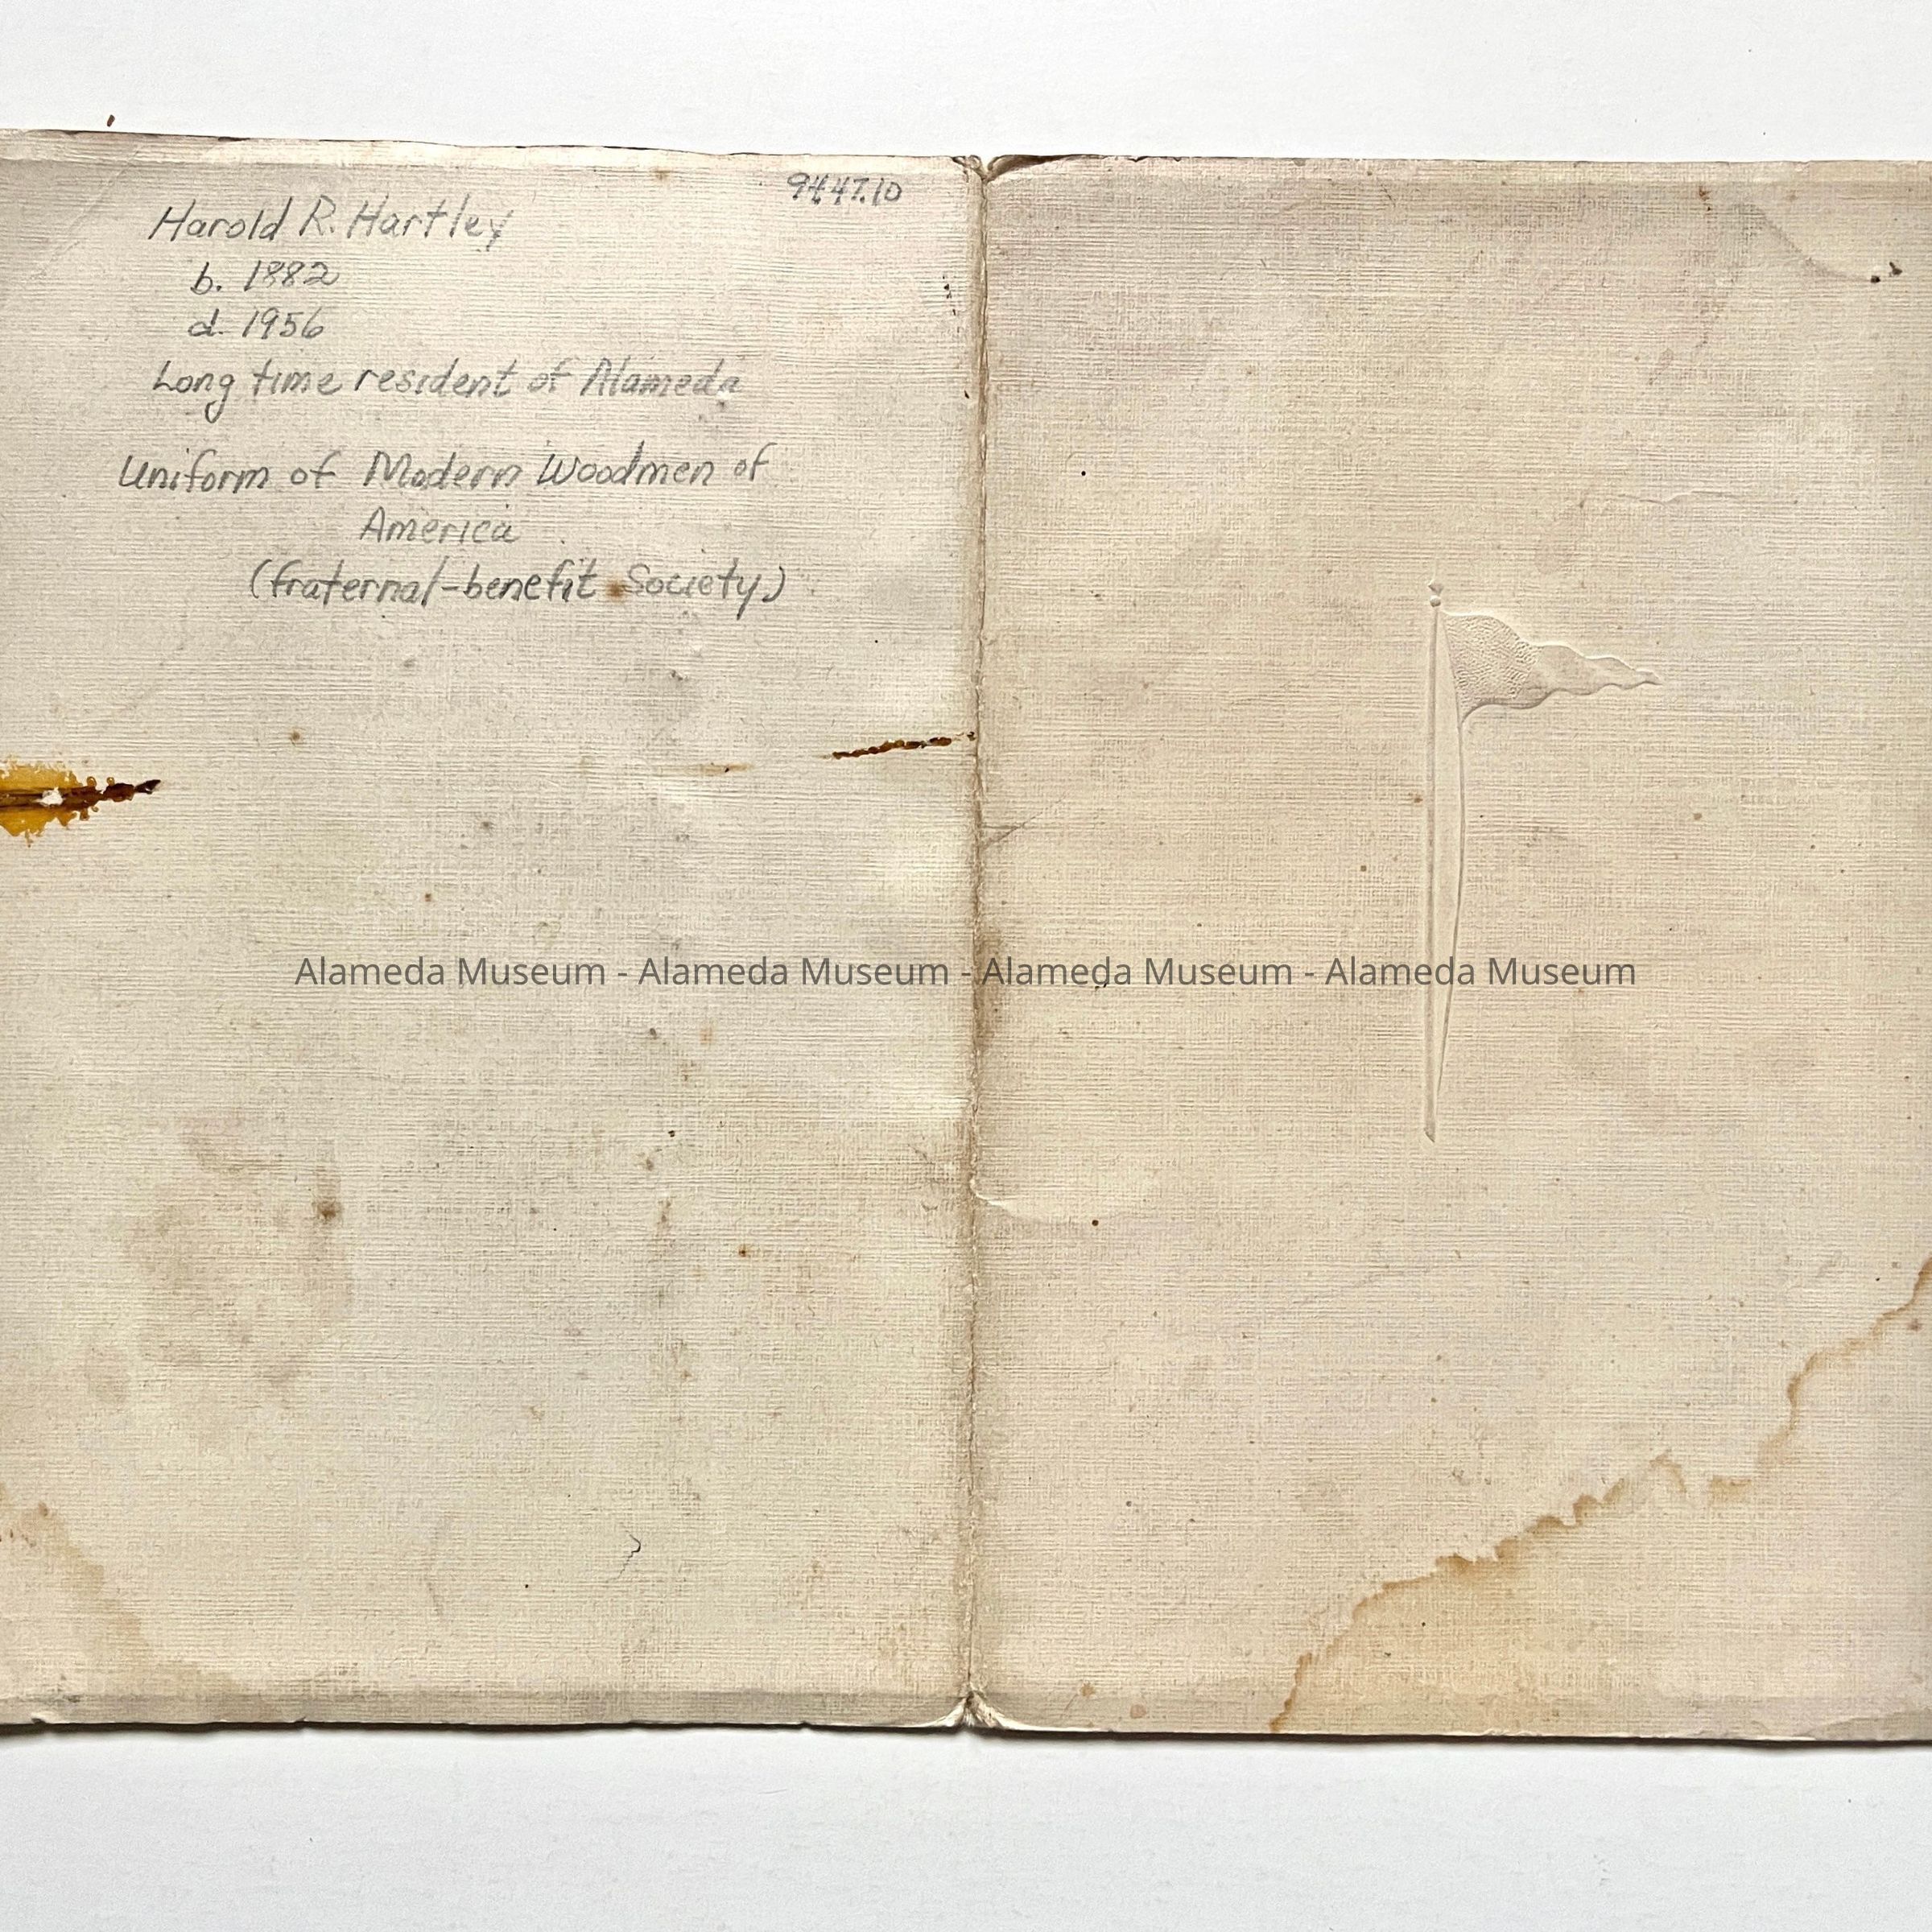 94.47.10
Harold R. Hartley
b. 1882
d. 1956
Long time resident of Alameda
Uniform of Modern Woodmen of
America
(fraternal-benefit Society)
Alameda Museum - Alameda Museum - Alameda Museum - Alameda Museum